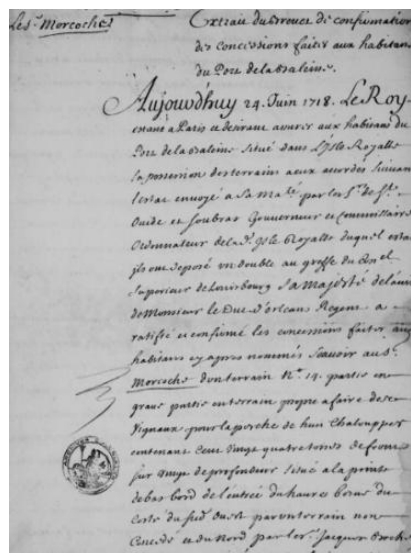 Le Sr. Morcoche
Extrait du Brevet de confirmation
des concessions faites aux habitans
du Port de la Baleine.
Aujourd'huy 24. Juin 1718. Le Roy
étant a Paris et desirant assurer aux habitans du
Port de la Baleine situé dans l'Isle Royalle
la possession des terrains a eux accordés suivant
l'estat envoyé a Sa Maté. par les Srs. de St.
Ovide et Soubras Gouverneur et Commissaire
Ordonnateur de la d. Isle Royalle duquel estat
ils ont deposé un double au greffe du Conel
Superieur de Louisbourg Sa Majesté de l'avis
de Monsieur le Duc d'orleans Regent a
ratifié et confirmé les concessions faites aux
habitans cy apres nommés Scavoir au Sr.
Morcoche d'un terrain No. 14. partie en
grave partie en terrain propre a faire des
Vignaux pour la pesche de huit Chaloupes
contenant Cent vingt quatre toises de front
sur vingt de profondeur situé a la pointe
de bas bord de l'entrée du havre borné du
Costé du sud ouest par un terrain non
Concedé et du Nord par le Sr. Jacques